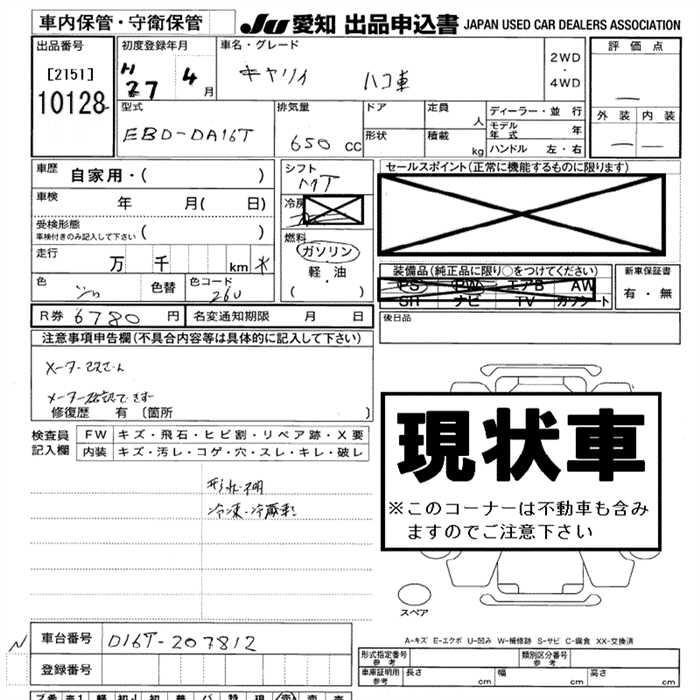 車内保管・守衛保管 JU 愛知 出品申込書 JAPAN USED CAR DEALERS ASSOCIATION
出品番号 [2151] 10128
初度登録年月 H27 4月
車名・グレード キャリイ ハコ車
2WD・4WD
評価点 —
外装 内装 — —
型式 EBD-DA16T
排気量 650 CC
ドア 定員 人
形状 積載 kg
ディーラー・並行
モデル年式 年
ハンドル 左・右
車歴 自家用・( )
車検 年 月( 日)
受検形態 車検付きのみ記入して下さい ( )
走行 万 千 km
色 色替 色コード 26U
シフト MT
冷房
燃料 ガソリン 軽油 ( )
セールスポイント(正常に機能するものに限ります)
装備品(純正品に限り○をつけてください)
PS PW エアB AW
SR ナビ TV カワシート
新車保証書 有・無
R券 6780 円 名変通知期限 月 日
後日品
注意事項申告欄(不具合内容等は具体的に記入して下さい)
修復歴 有 〔箇所 〕
検査員記入欄 FW キズ・飛石・ヒビ割・リペア跡・X要
内装 キズ・汚レ・コゲ・穴・スレ・キレ・破レ
冷凍・冷蔵車
現状車
※このコーナーは不動車も含み
ますのでご注意下さい
スペア
A-キズ E-エクボ U-凹み W-補修跡 S-サビ C-腐食 XX-交換済
N 車台番号 D16T-207812
登録番号
形式指定番号 参考 類別区分番号 参考
車庫証明用 参考 長さ cm 幅 cm 高さ cm